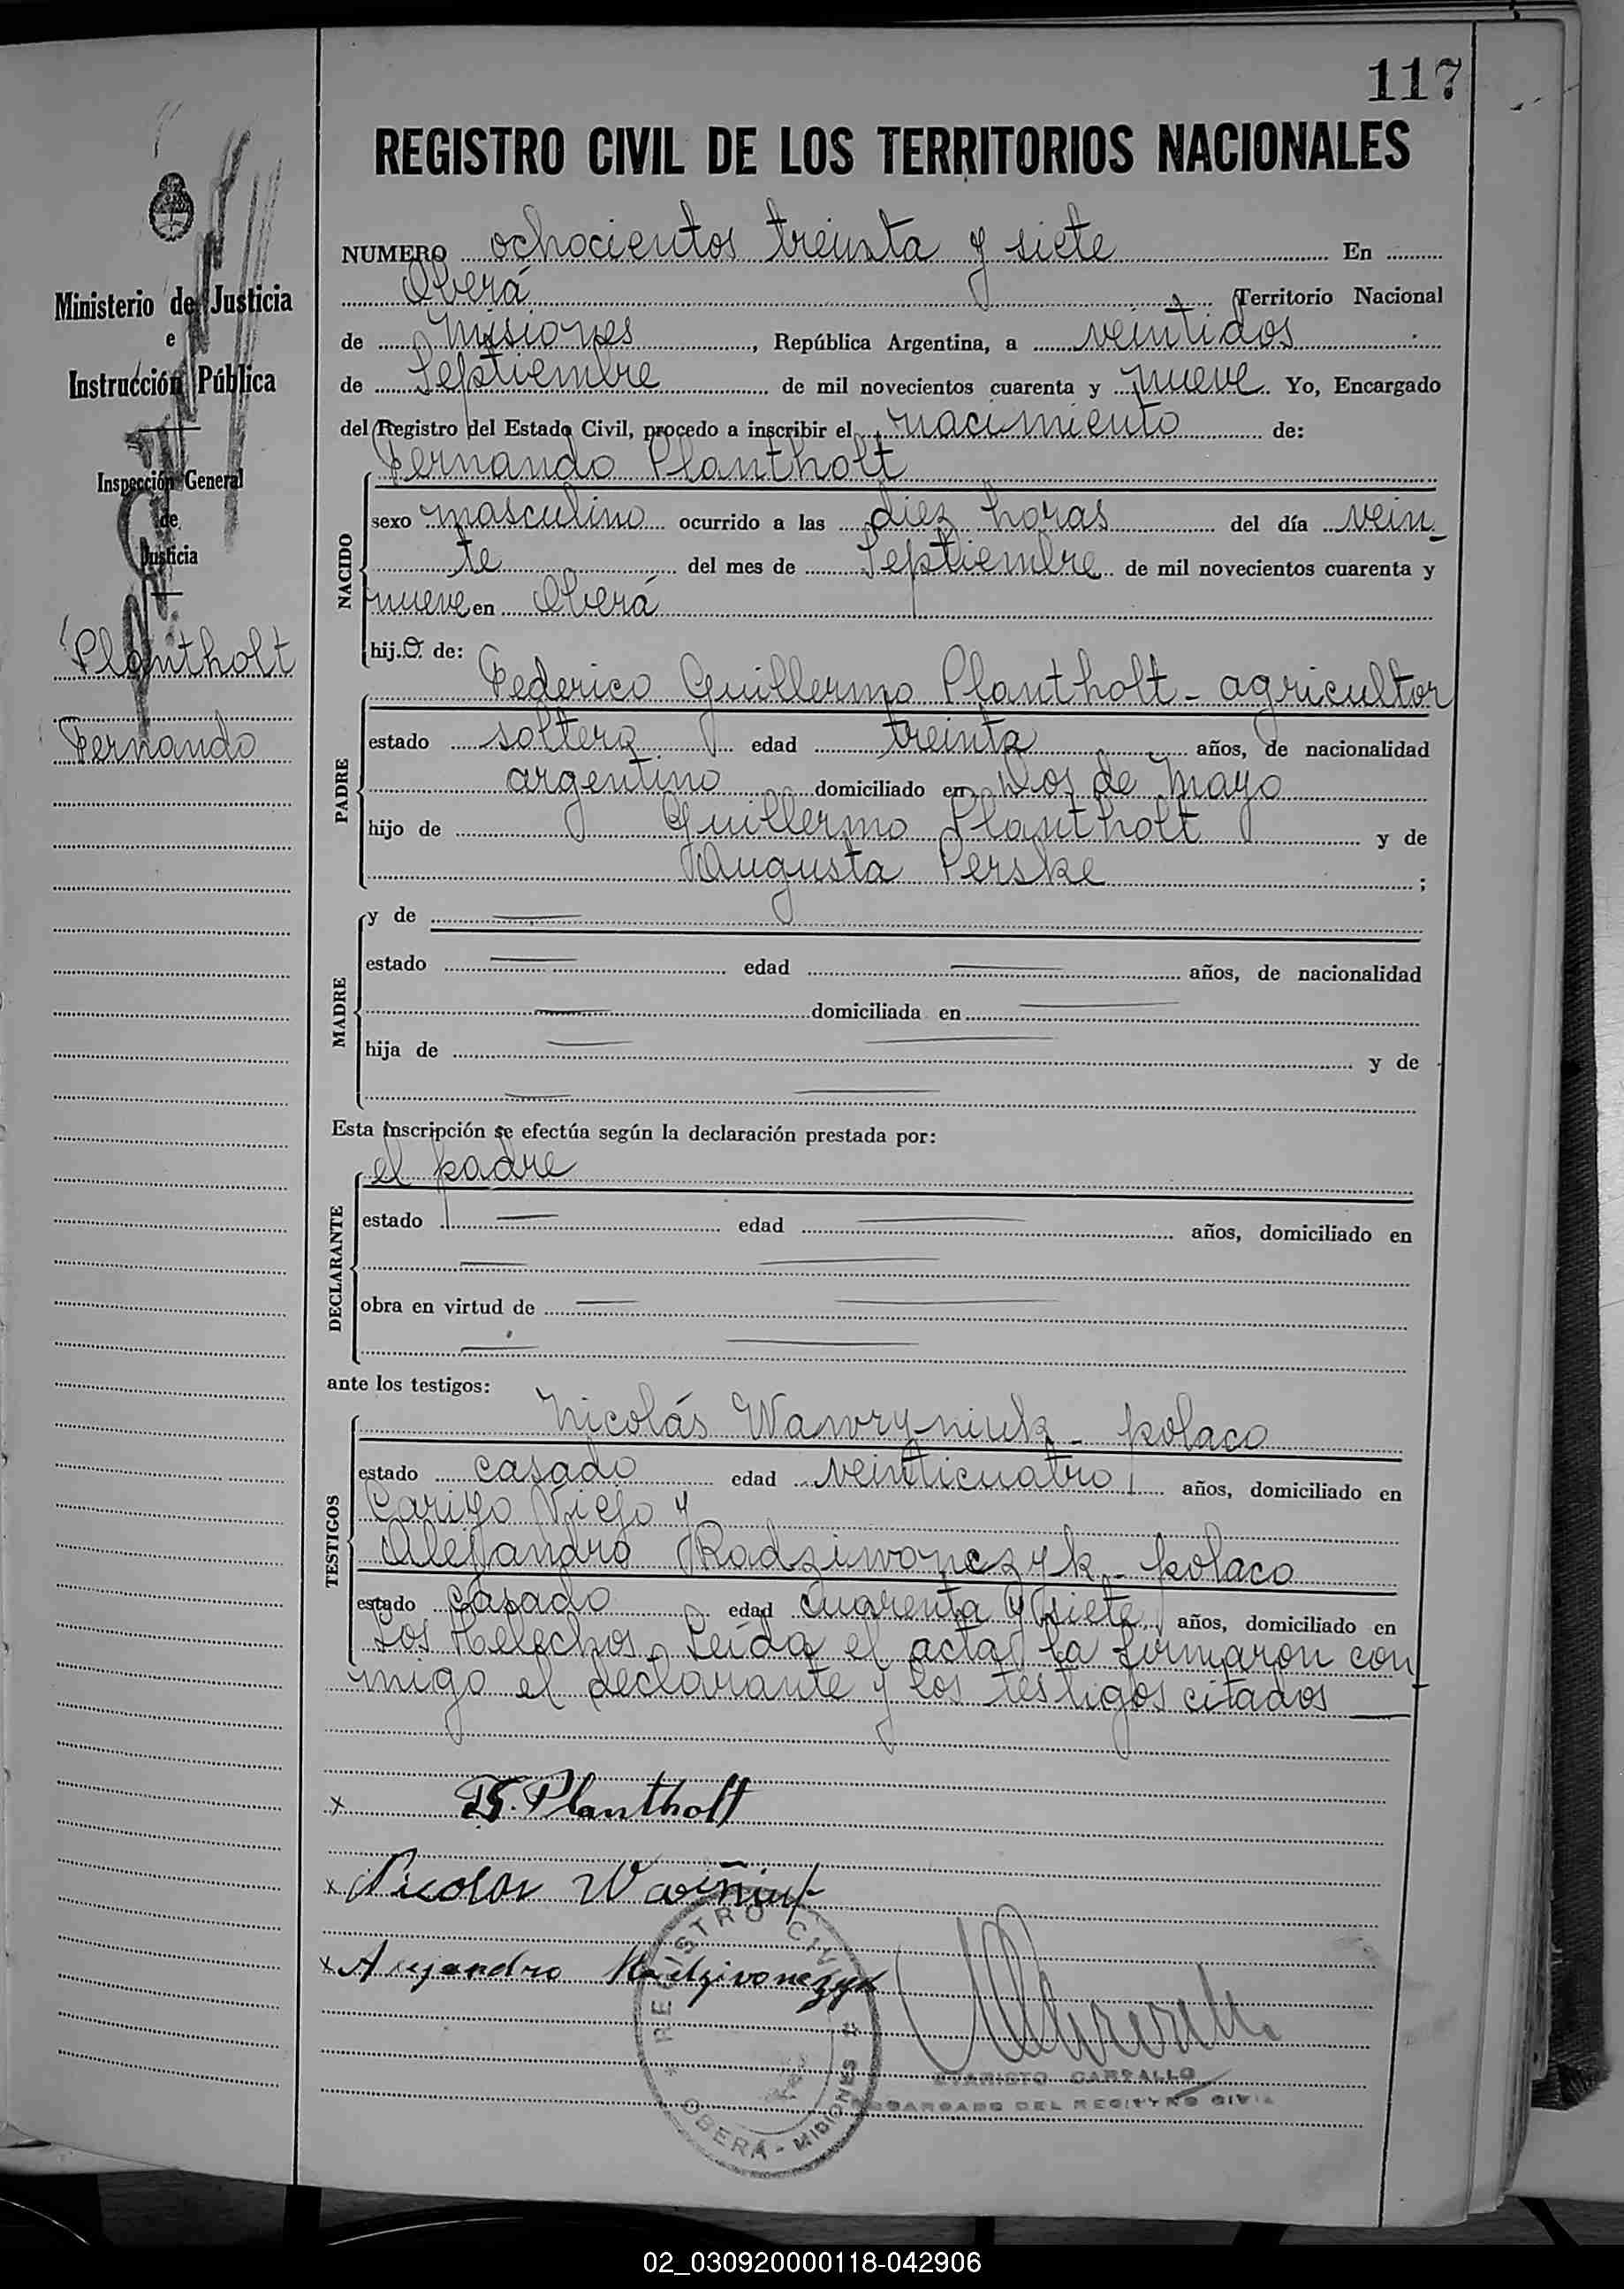 117
REGISTRO CIVIL DE LOS TERRITORIOS NACIONALES
Ministerio de Justicia
e
Instrucción Pública
Inspección General
de
Justicia
Plantholt
Fernando
NUMERO ochocientos treinta y siete En
Oberá Territorio Nacional
de Misiones, República Argentina, a veintidos
de Septiembre de mil novecientos cuarenta y nueve. Yo, Encargado
del Registro del Estado Civil, procedo a inscribir el nacimiento de:
Fernando Plantholt
NACIDO
sexo masculino ocurrido a las diez horas del día vein_
te del mes de Septiembre de mil novecientos cuarenta y
nueve en Oberá
hij.o. de:
Federico Guillermo Plantholt - agricultor
PADRE
estado soltero edad treinta años, de nacionalidad
argentino domiciliado en Dos de Mayo
hijo de Guillermo Plantholt y de
Augusta Perske ;
MADRE
y de
estado edad años, de nacionalidad
domiciliada en
hija de y de
Esta inscripción se efectúa según la declaración prestada por:
el padre
DECLARANTE
estado edad años, domiciliado en
obra en virtud de
ante los testigos:
Nicolás Wawryniuk - polaco
TESTIGOS
estado casado edad veinticuatro años, domiciliado en
Viejo y
Alejandro Radziwonczyk - polaco
estado casado edad cuarenta y siete años, domiciliado en
Los Helechos. Leída el acta la firmaron con
migo el declarante y los testigos citados
x Plantholt
x Nicolas
x Alejandro Radzivonezyk
REGISTRO CIVIL
OBERÁ - MISIONES
EVARISTO CARBALLO
ENCARGADO DEL REGISTRO CIVIL
02_030920000118-042906